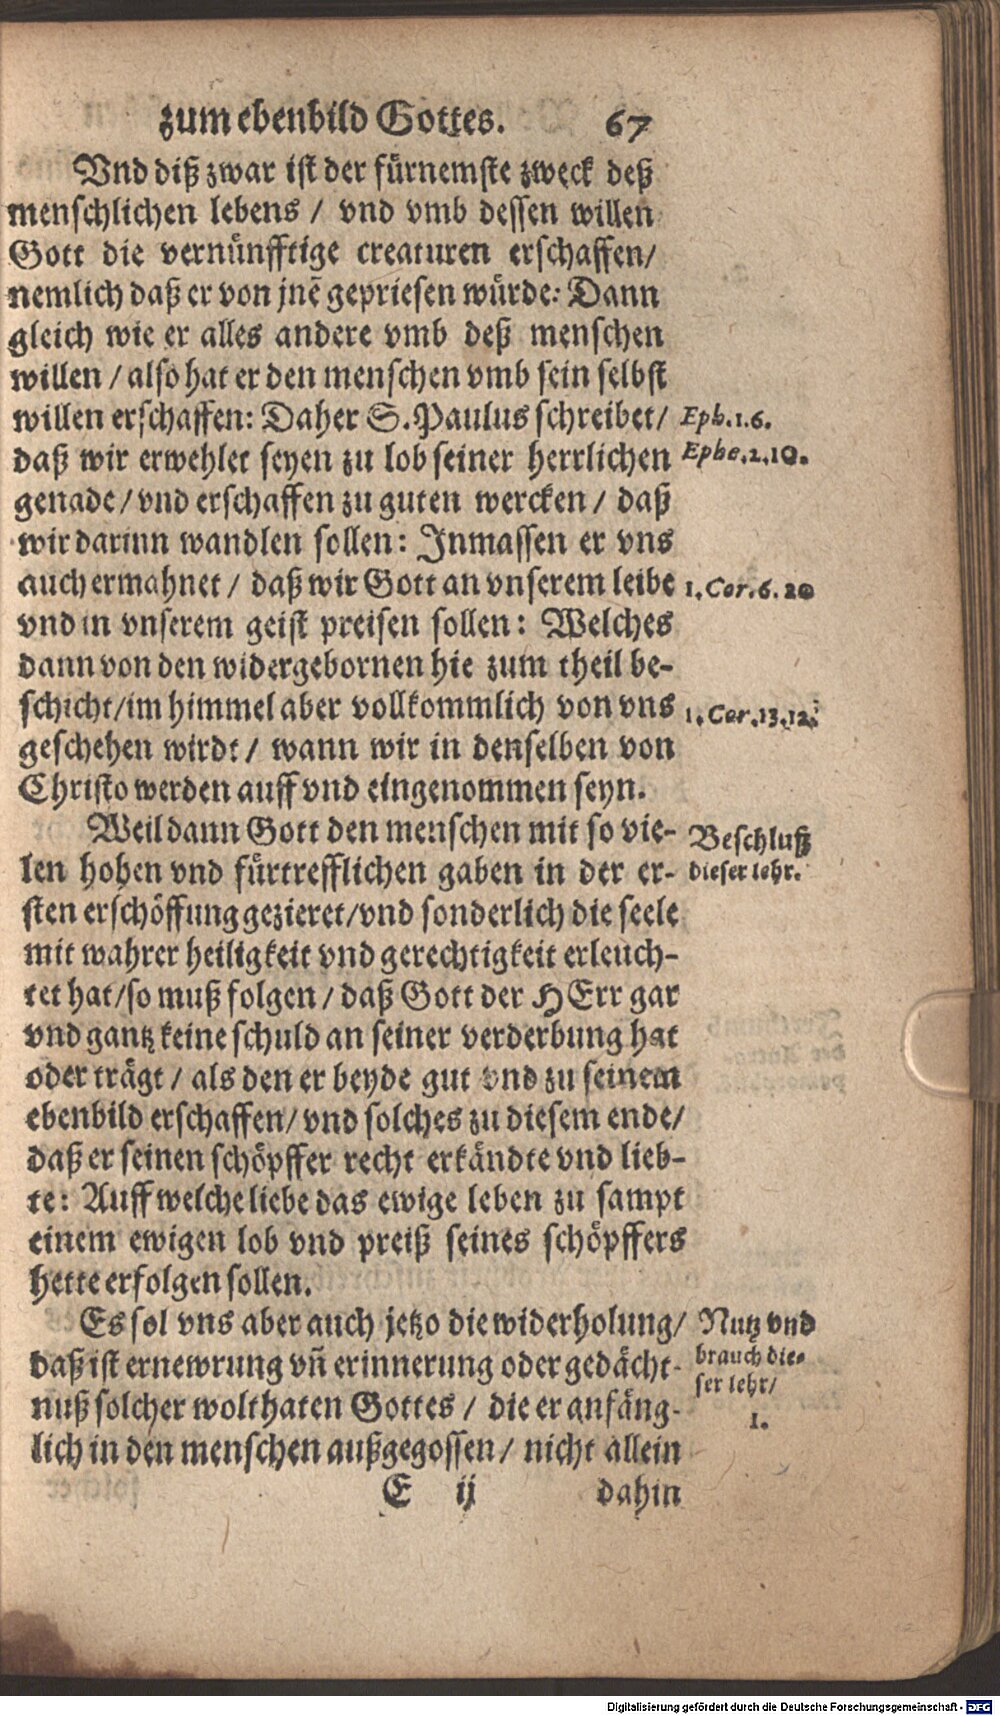 zum ebenbild Gottes. 67
Vnd diß zwar ist der fürnemste zweck deß
menschlichen lebens / vnd vmb dessen willen
Gott die vernünfftige creaturen erschaffen/
nemlich daß er von jnē gepriesen würde: Dann
gleich wie er alles andere vmb deß menschen
willen / also hat er den menschen vmb sein selbst
willen erschaffen: Daher S. Paulus schreibet/
Eph.1.6.
daß wir erwehlet seyen zu lob seiner herrlichen
Ephe.2.10.
genade/vnd erschaffen zu guten wercken / daß
wir darinn wandlen sollen: Inmassen er vns
auch ermahnet / daß wir Gott an vnserem leibe
1.Cor.6.20
vnd in vnserem geist preisen sollen: Welches
dann von den widergebornen hie zum theil be-
schicht/im himmel aber vollkommlich von vns
1.Cor.13.12.
geschehen wirdt / wann wir in denselben von
Christo werden auff vnd eingenommen seyn.
Weil dann Gott den menschen mit so vie-
Beschluß
len hohen vnd fürtrefflichen gaben in der er-
dieser lehr.
sten erschöffung gezieret/vnd sonderlich die seele
mit wahrer heiligkeit vnd gerechtigkeit erleuch-
tet hat/so muß folgen / daß Gott der HErr gar
vnd gantz keine schuld an seiner verderbung hat
oder trägt / als den er beyde gut vnd zu seinem
ebenbild erschaffen/ vnd solches zu diesem ende/
daß er seinen schöpffer recht erkändte vnd lieb-
te: Auff welche liebe das ewige leben zu sampt
einem ewigen lob vnd preiß seines schöpffers
hette erfolgen sollen.
Es sol vns aber auch jetzo die widerholung/
Nutz vnd
daß ist ernewrung vñ erinnerung oder gedächt-
brauch die-
ser lehr/
nuß solcher wolthaten Gottes / die er anfäng-
1.
lich in den menschen außgegossen / nicht allein
E ij dahin
Digitalisierung gefördert durch die Deutsche Forschungsgemeinschaft - DFG